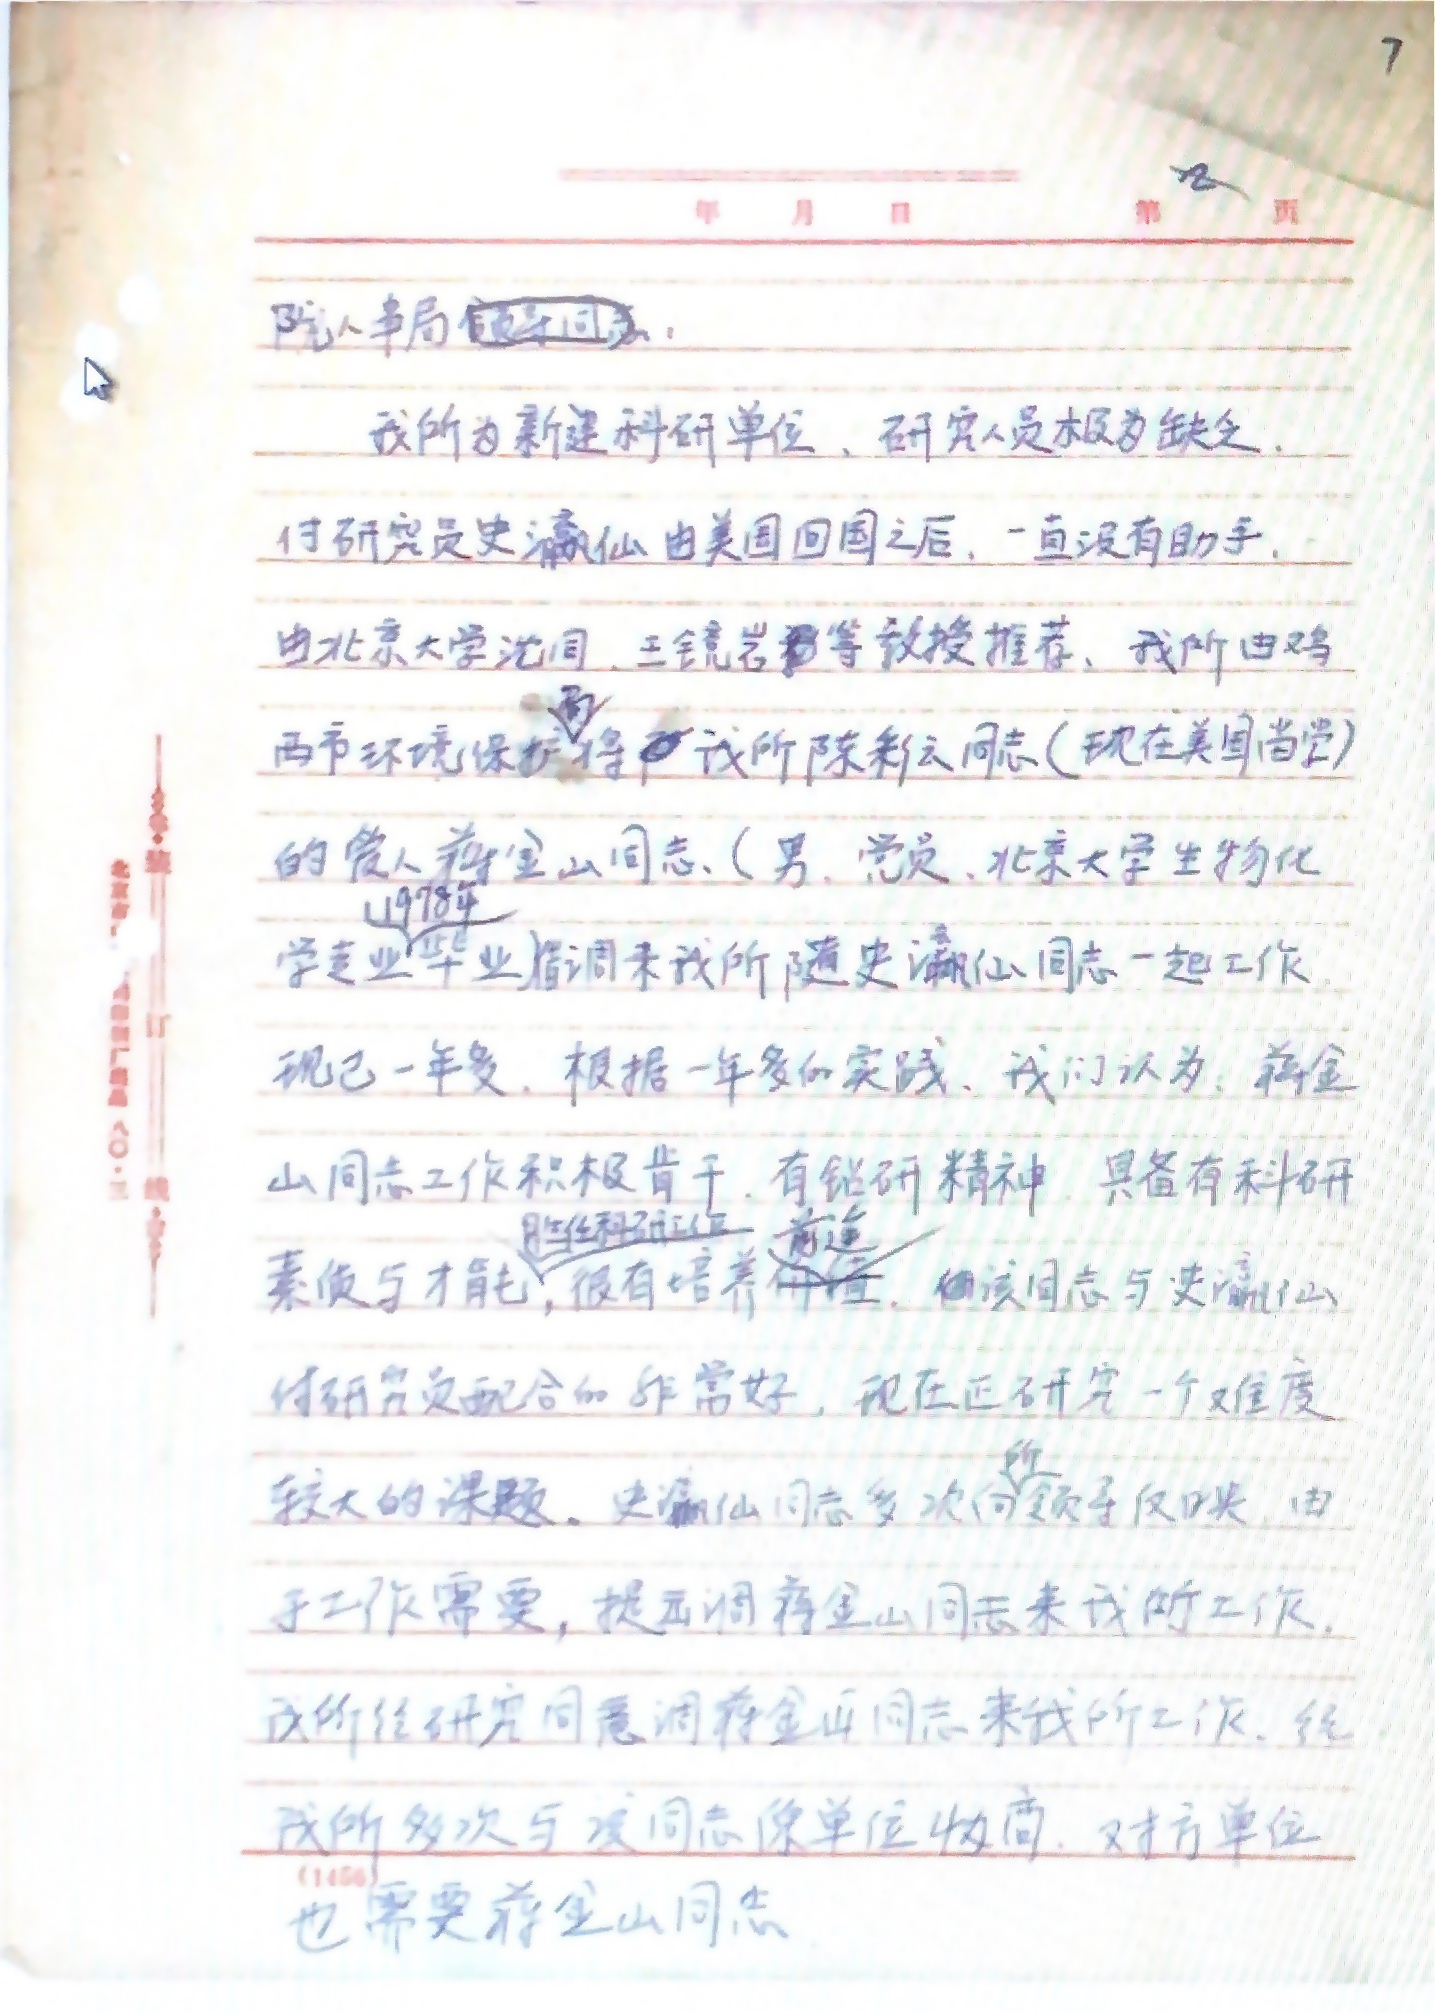 7
年 月 日 第 页
院人事局领导同志.
我所为新建科研单位、研究人员极为缺乏.
付研究员史瀛仙由美国回国之后、一直没有助手.
由北京大学沈同、王镜岩等教授推荐、我所由鸡
局
西市环境保护将我所陈彩云同志(现在美国当学)
的爱人蒋金山同志、(男、党员、北京大学生物化
1978年
学专业毕业)借调来我所随史瀛仙同志一起工作
现已一年多. 根据一年多的实践、我们认为、蒋金
山同志工作积极肯干、有钻研精神、具备有科研
胜任科研工作 前途
素质与才能, 很有培养价值. 但该同志与史瀛仙
付研究员配合的非常好, 现在正研究一个难度
所
较大的课题。史瀛仙同志多次向领导反映 由
于工作需要, 提出调蒋金山同志来我所工作.
我所经研究同意调蒋金山同志来我所工作、经
我所多次与该同志原单位协商、对方单位
(1456)
也需要蒋金山同志
装
订
线
北京市
八〇·三